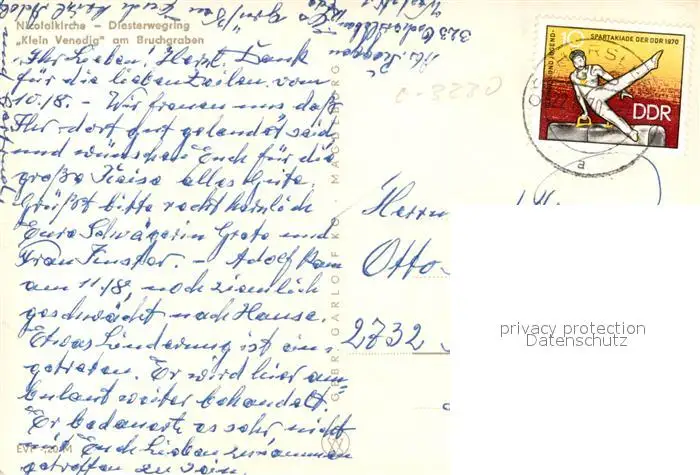 Nikolaikirche - Diesterwegring
„Klein Venedig" am Bruchgraben
Ihr Lieben! Herzl. Dank
für die lieben Zeilen vom
10./8. - Wir freuen uns daß
Ihr dort gut gelandet seid
und wünschen Euch für die
große Reise alles Gute.
Grüßt bitte recht herzlich
Eure Schwägerin Grete und
Frau Finster. - Adolf kam
am 11/8, noch ziemlich
geschwächt nach Hause.
Etwas Linderung ist ein-
getreten. Er wird hier am-
bulant weiter behandelt.
Er bedauerte es sehr nicht
mit Euch Lieben zusammen
getroffen zu sein.
EVP -,20 M
GEBR. GARLOFF KG · MAGDEBURG
SPARTAKIADE DER DDR 1970
10
DDR
OSCHERSL
a
Herrn
Otto
2732
privacy protection
Datenschutz